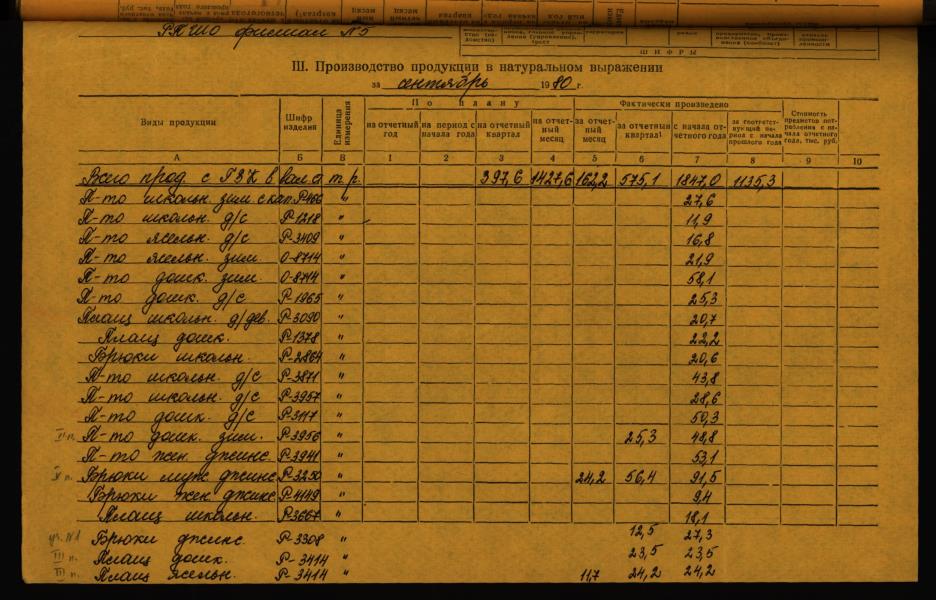 РПШО филиал N5
ШИФРЫ
III. Производство продукции в натуральном выражении
за сентябрь 1980 г.
Виды продукции | Шифр изделия | Единица измерения | По плану | Фактически произведено | Стоимость предметов потребления с начала отчетного года, тыс. руб.
на отчетный год | на период с начала года | на отчетный квартал | на отчетный месяц | за отчетный месяц | за отчетный квартал | с начала отчетного года | за соответствующий период с начала прошлого года
А | Б | В | 1 | 2 | 3 | 4 | 5 | 6 | 7 | 8 | 9 | 10
Всего прод. с ГЗК в т.р. 397,6 1427,6 162,2 575,1 1847,0 1135,3
П-то школьн. зим. с кап. Р-466 " 27,6
П-то школьн. д/с Р-1218 " 11,9
П-то ясельн. д/с Р-3409 " 16,8
П-то ясельн. зим. О-8714 " 21,9
П-то дошк. зим. О-8714 " 58,1
П-то дошк. д/с Р-1965 " 25,3
Плащ школьн. д/дев. Р-3090 " 20,7
Плащ дошк. Р-1378 " 22,2
Брюки школьн. Р-2864 " 20,6
П-то школьн. д/с Р-3871 " 43,8
П-то школьн. д/с Р-3957 " 28,6
П-то дошк. д/с Р-3117 " 50,3
II п. П-то дошк. зим. Р-3956 " 25,3 48,8
П-то жен. джинс. Р-3941 " 53,1
V п. Брюки муж. джинс Р-3250 " 24,2 56,4 91,5
Брюки жен. джинс Р-4149 " 9,4
Плащ школьн. Р-3667 " 18,1
уч. N1 Брюки джинс. Р-3308 " 12,5 27,3
III п. Плащ дошк. Р-3414 " 23,5 23,5
III п. Плащ ясельн. Р-3414 " 11,7 24,2 24,2